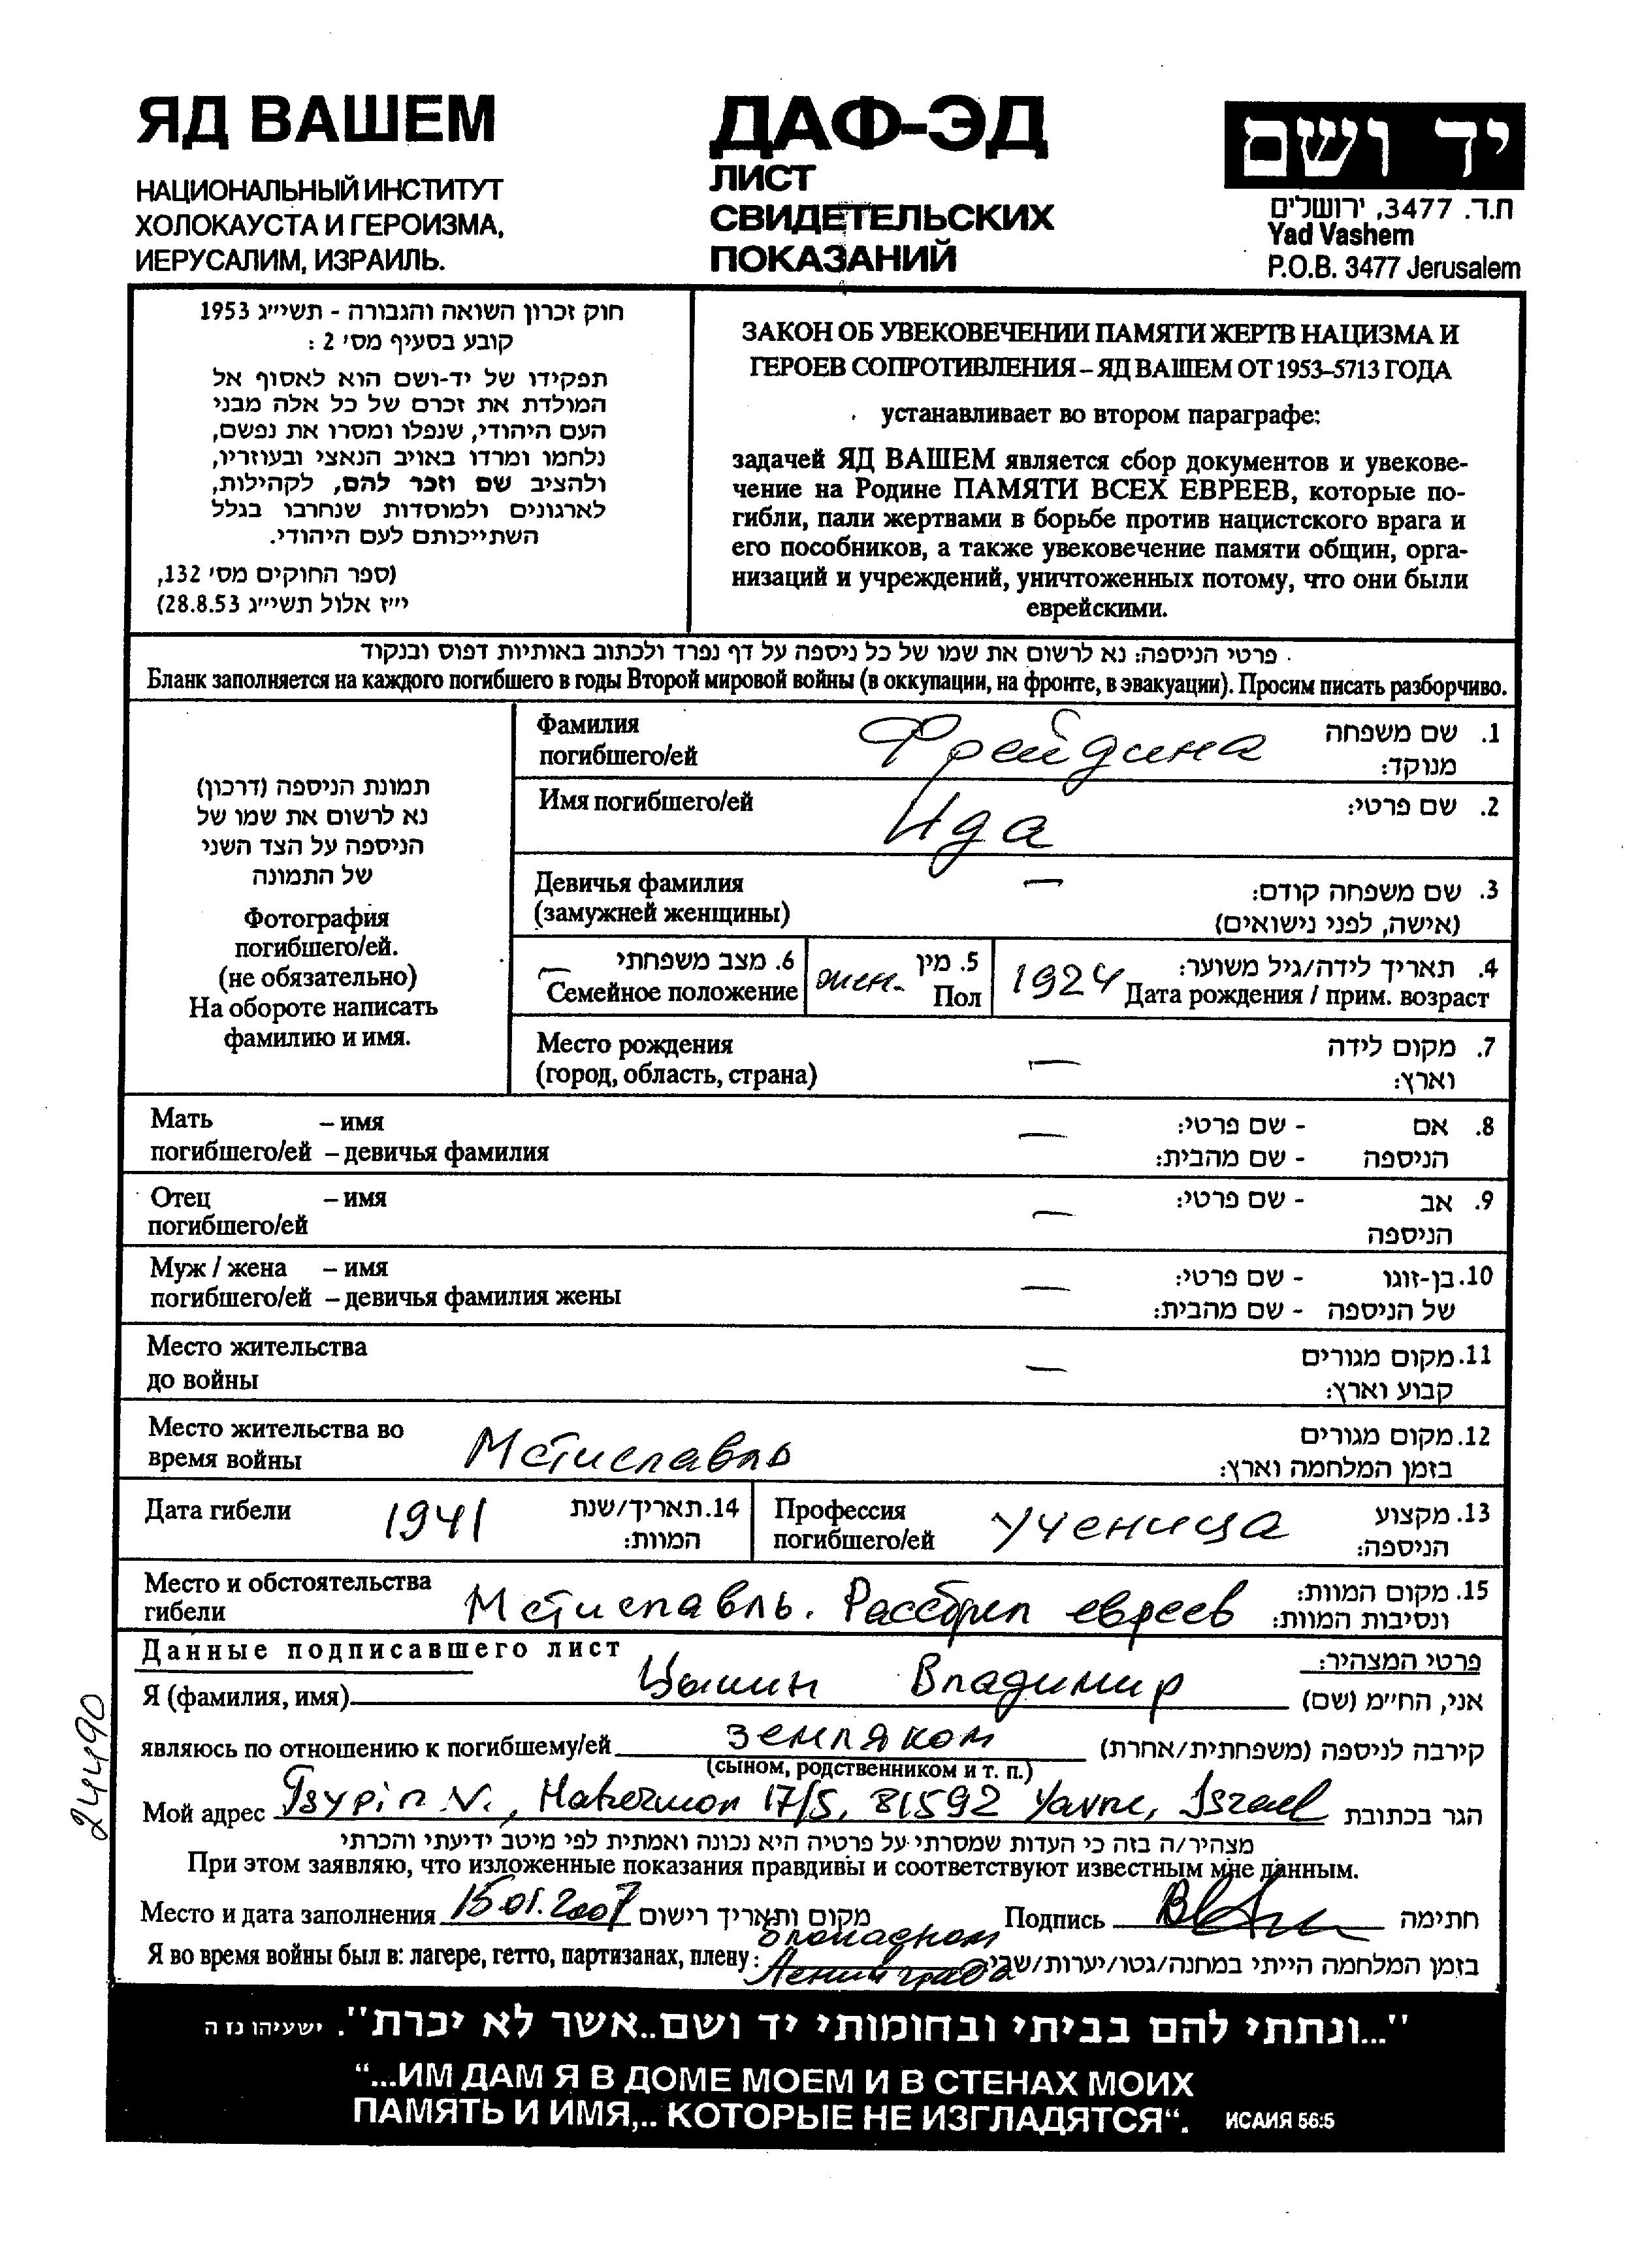 ЯД ВАШЕМ
НАЦИОНАЛЬНЫЙ ИНСТИТУТ
ХОЛОКАУСТА И ГЕРОИЗМА,
ИЕРУСАЛИМ, ИЗРАИЛЬ.
ДАФ-ЭД
ЛИСТ
СВИДЕТЕЛЬСКИХ
ПОКАЗАНИЙ
יד ושם
ת.ד. 3477, ירושלים
Yad Vashem
P.O.B. 3477 Jerusalem
חוק זכרון השואה והגבורה - תשי״ג 1953
קובע בסעיף מס׳ 2 :
תפקידו של יד-ושם הוא לאסוף אל
המולדת את זכרם של כל אלה מבני
העם היהודי, שנפלו ומסרו את נפשם,
נלחמו ומרדו באויב הנאצי ובעוזריו,
ולהציב שם וזכר להם, לקהילות,
לארגונים ולמוסדות שנחרבו בגלל
השתייכותם לעם היהודי.
(ספר החוקים מס׳ 132,
י״ז אלול תשי״ג 28.8.53)
ЗАКОН ОБ УВЕКОВЕЧЕНИИ ПАМЯТИ ЖЕРТВ НАЦИЗМА И
ГЕРОЕВ СОПРОТИВЛЕНИЯ – ЯД ВАШЕМ ОТ 1953–5713 ГОДА
устанавливает во втором параграфе:
задачей ЯД ВАШЕМ является сбор документов и увекове-
чение на Родине ПАМЯТИ ВСЕХ ЕВРЕЕВ, которые по-
гибли, пали жертвами в борьбе против нацистского врага и
его пособников, а также увековечение памяти общин, орга-
низаций и учреждений, уничтоженных потому, что они были
еврейскими.
פרטי הניספה: נא לרשום את שמו של כל ניספה על דף נפרד ולכתוב באותיות דפוס ובנקוד
Бланк заполняется на каждого погибшего в годы Второй мировой войны (в оккупации, на фронте, в эвакуации). Просим писать разборчиво.
תמונת הניספה (דרכון)
נא לרשום את שמו של
הניספה על הצד השני
של התמונה
Фотография
погибшего/ей.
(не обязательно)
На обороте написать
фамилию и имя.
Фамилия Фрейдина 1. שם משפחה
погибшего/ей מנוקד:
Имя погибшего/ей Ида 2. שם פרטי:
Девичья фамилия — 3. שם משפחה קודם:
(замужней женщины) (אישה, לפני נישואים)
— 6. מצב משפחתי жен. 5. מין 1924 4. תאריך לידה/גיל משוער:
Семейное положение Пол Дата рождения / прим. возраст
Место рождения — 7. מקום לידה
(город, область, страна) וארץ:
Мать – имя — - שם פרטי: 8. אם
погибшего/ей – девичья фамилия - שם מהבית: הניספה
Отец – имя — - שם פרטי: 9. אב
погибшего/ей הניספה
Муж / жена – имя — - שם פרטי: 10. בן-זוגו
погибшего/ей – девичья фамилия жены - שם מהבית: של הניספה
Место жительства — 11. מקום מגורים
до войны קבוע וארץ:
Место жительства во Мстиславль 12. מקום מגורים
время войны בזמן המלחמה וארץ:
Дата гибели 1941 14. תאריך/שנת Профессия ученица 13. מקצוע
המוות: погибшего/ей הניספה:
Место и обстоятельства Мстиславль. Расстрел евреев 15. מקום המוות:
гибели ונסיבות המוות:
Данные подписавшего лист פרטי המצהיר:
Я (фамилия, имя) Цыпин Владимир אני, החי״מ (שם)
являюсь по отношению к погибшему/ей земляком קירבה לניספה (משפחתית/אחרת)
(сыном, родственником и т. п.)
Мой адрес Tsypin V., Hahermon 17/5, 81592 Yavne, Israel הגר בכתובת
מצהיר/ה בזה כי העדות שמסרתי על פרטיה היא נכונה ואמתית לפי מיטב ידיעתי והכרתי
При этом заявляю, что изложенные показания правдивы и соответствуют известным мне данным.
Место и дата заполнения 15.01.2007 מקום ותאריך רישום Подпись חתימה
Я во время войны был в: лагере, гетто, партизанах, плену: блокадном Ленинграде בזמן המלחמה הייתי במחנה/גטו/יערות/שבי
244490
"...ונתתי להם בביתי ובחומותי יד ושם..אשר לא יכרת". ישעיהו נז ה
“...ИМ ДАМ Я В ДОМЕ МОЕМ И В СТЕНАХ МОИХ
ПАМЯТЬ И ИМЯ,.. КОТОРЫЕ НЕ ИЗГЛАДЯТСЯ“. ИСАИЯ 56:5